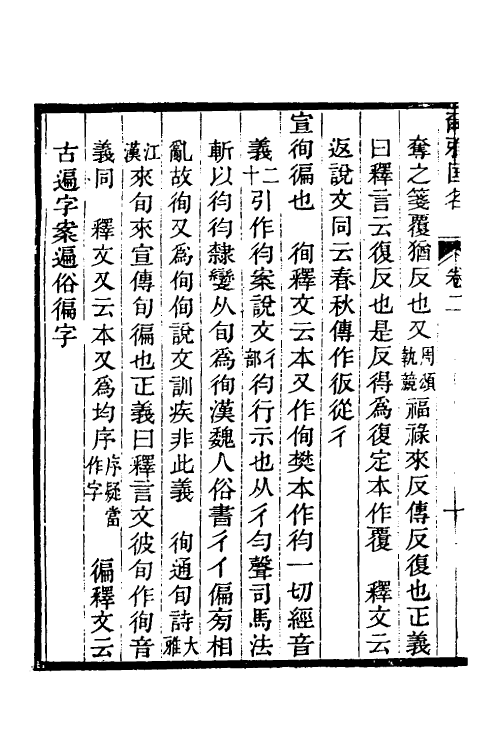 爾雅匡名 卷二 十
奪之箋覆猶反也又周頌執競福祿來反傳反復也正義
曰釋言云復反也是反得為復定本作覆　釋文云
返說文同云春秋傳作彶從彳
宣徇徧也　徇釋文云本又作侚樊本作袀一切經音
義十二引作袀案說文彳部袀行示也从彳勻聲司馬法
斬以袀袀隸變从旬為徇漢魏人俗書彳亻偏旁相
亂故徇又為侚侚說文訓疾非此義　徇通旬詩大雅
江漢來旬來宣傳旬徧也正義曰釋言文彼旬作徇音
義同　釋文又云本又為均序序疑當作字　徧釋文云
古遍字案遍俗徧字